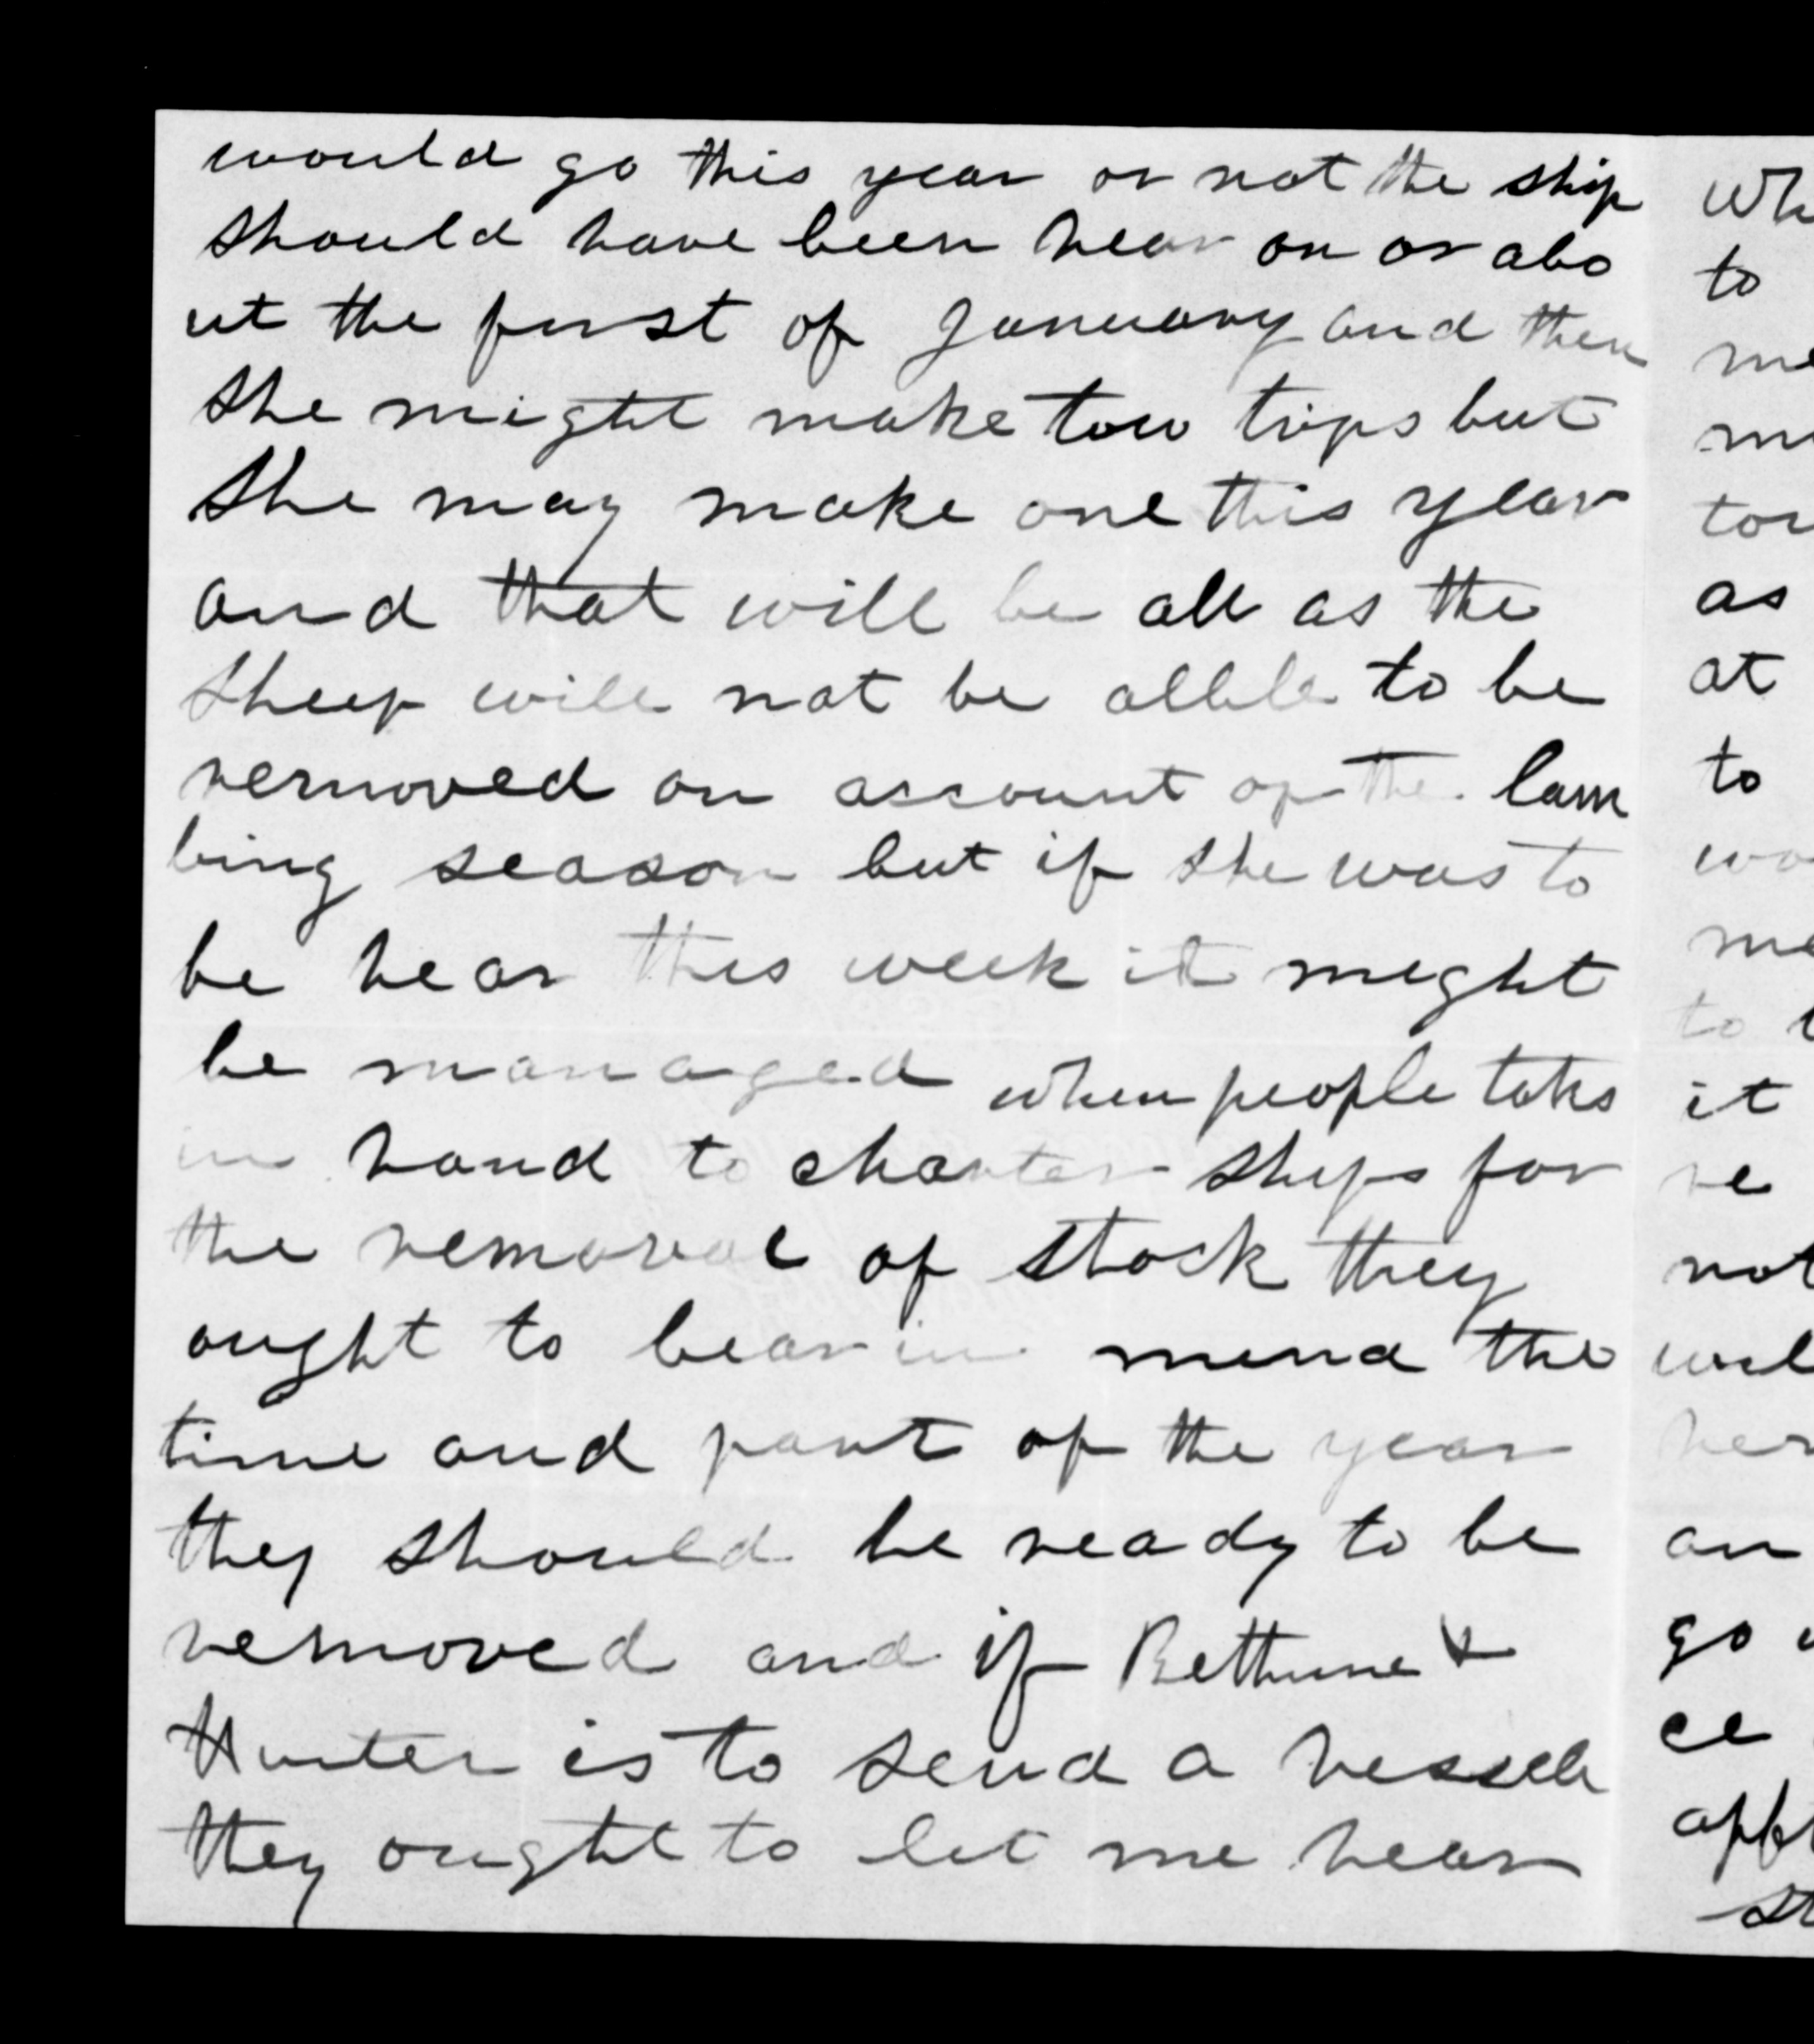 would go this year or not the ship
should have been hear on or abo
ut the first of January and then
she might make tow trips but
she may make one this year
and that will be all as the
sheep will not be allble to be
removed on account of the lam
bing season but if she was to
be hear this week it meght
be managed when people takes
in hand to charter ships for
the removal of stock they
ought to bear in mind the
time and part of the year
they should be ready to be
removed and if Bethune &
Hunter is to send a vessele
they ought to let me hear
to
as
at
to
it
re
not
an
go
ce